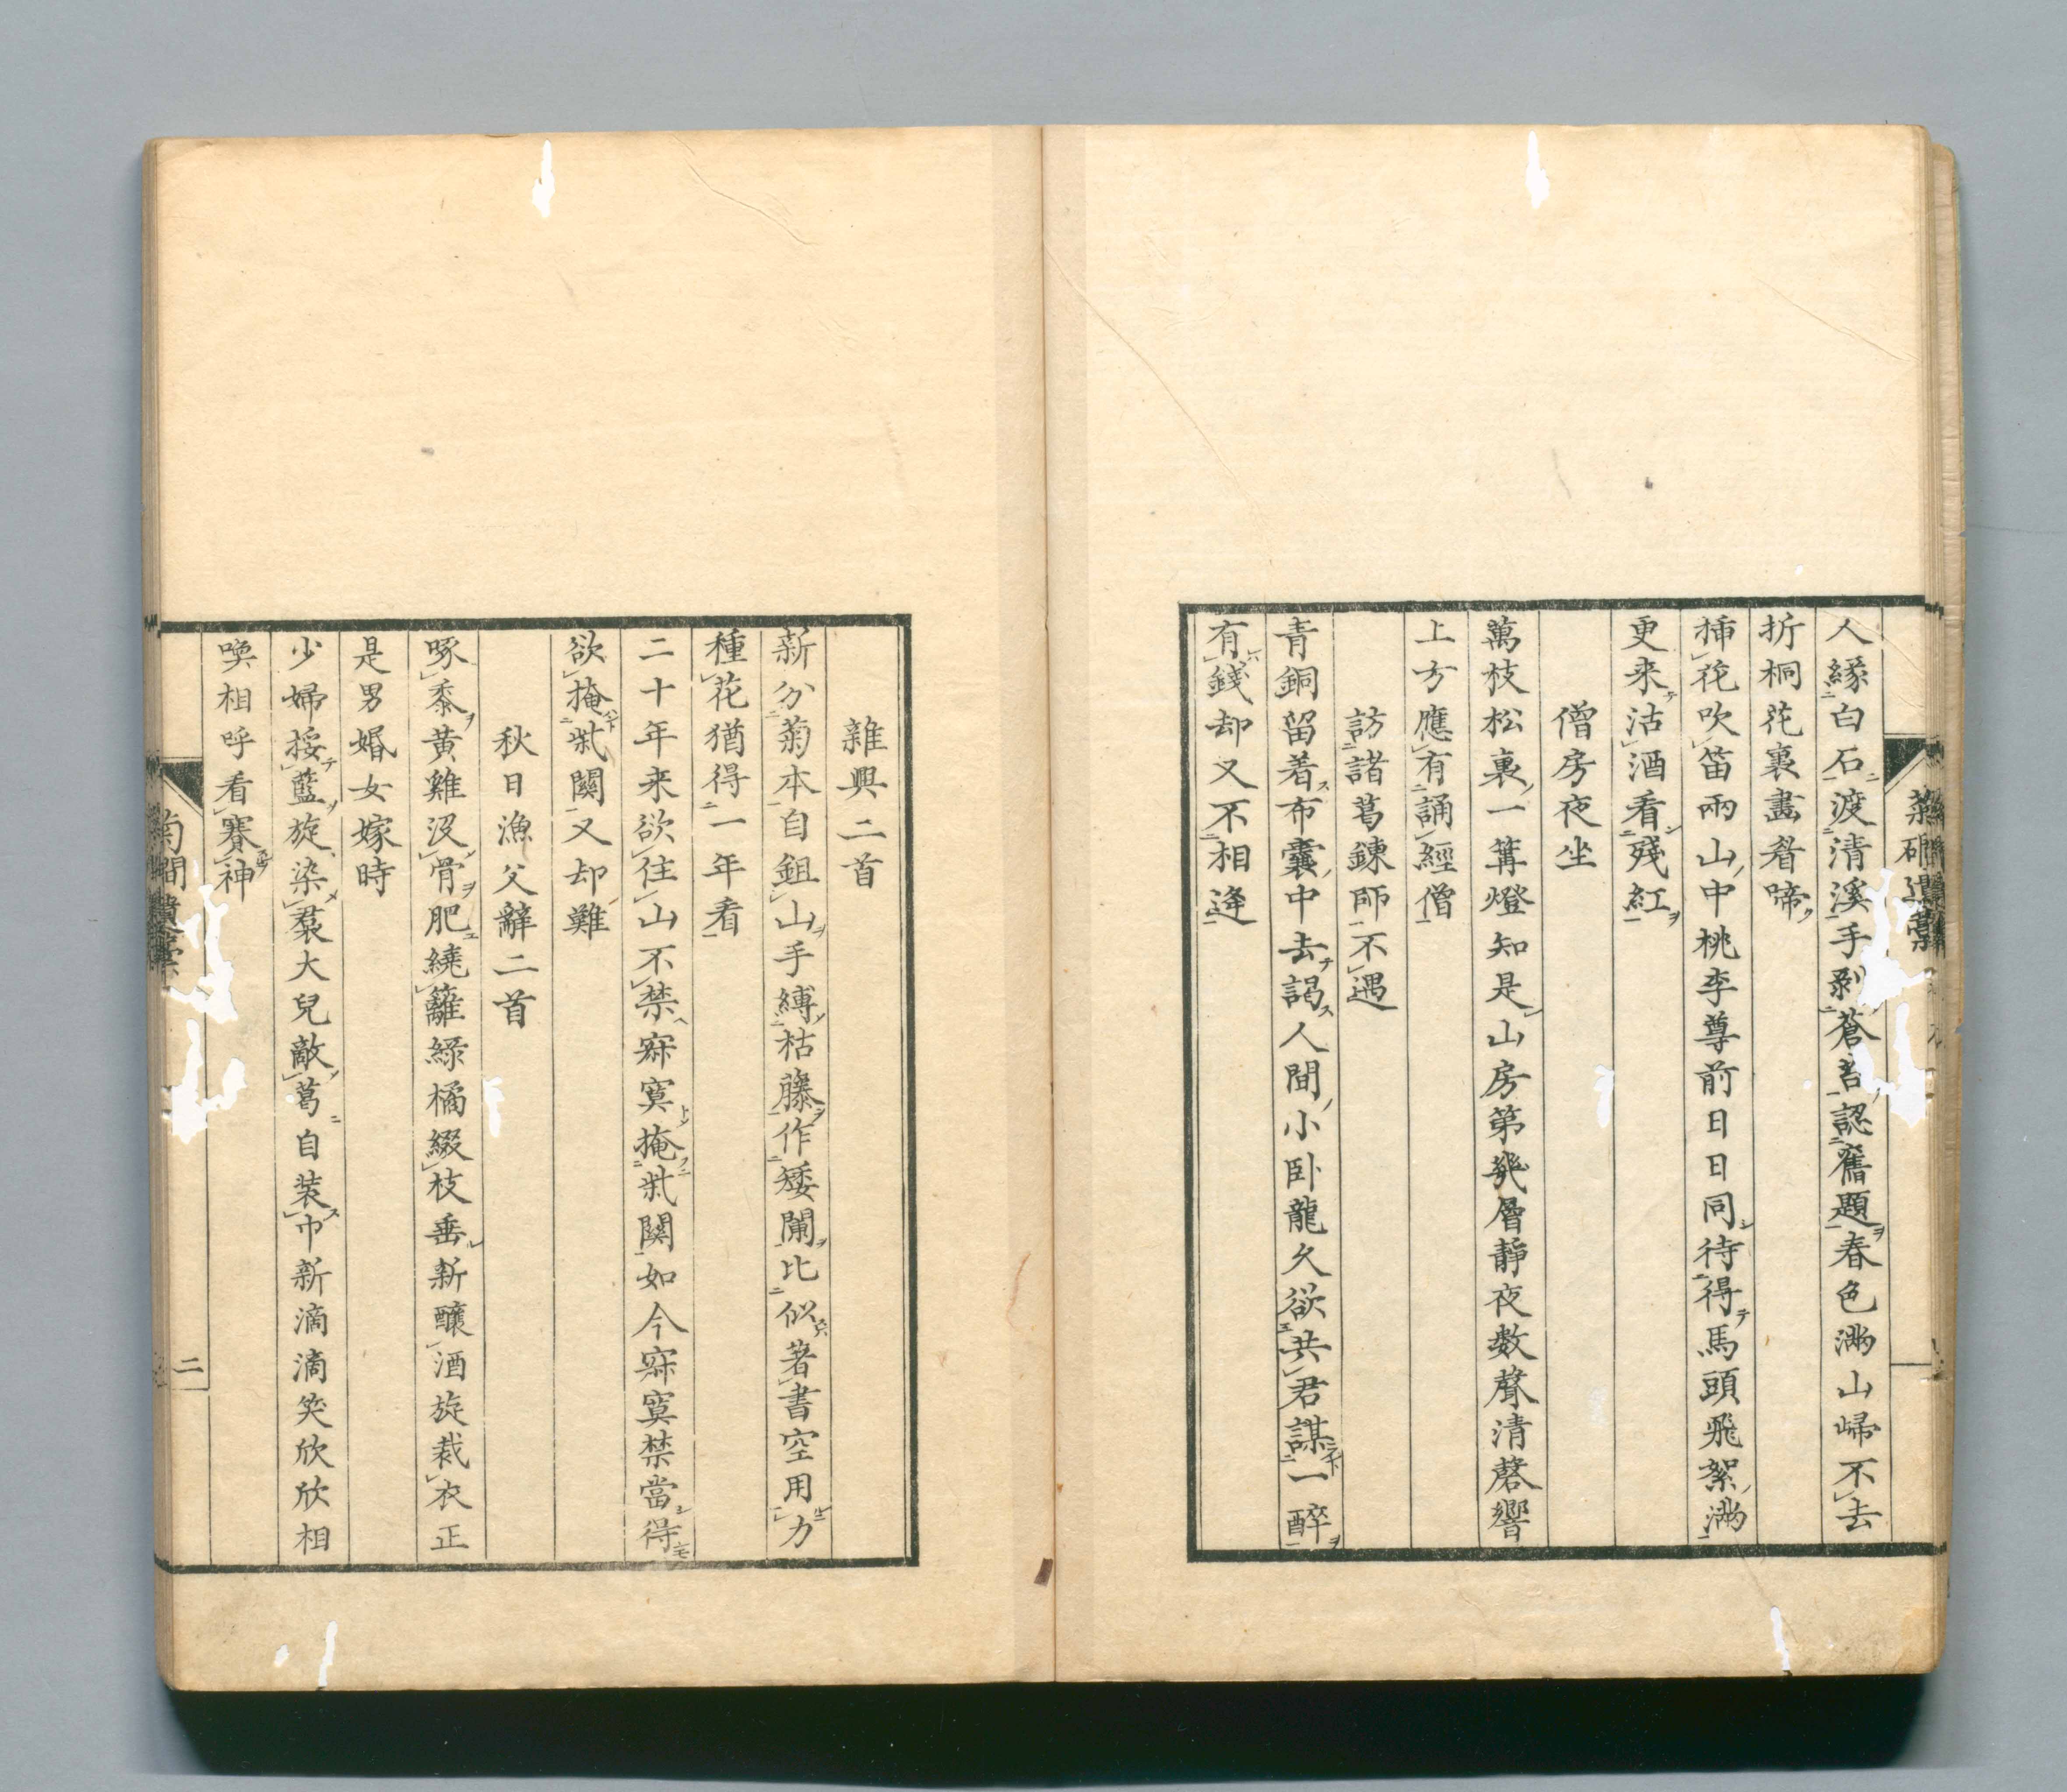 人緣白石渡清溪手剥蒼苔認舊題春色滿山歸不去
折桐花裏畵眉啼
挿花吹笛兩山中桃李尊前日日同待得馬頭飛絮滿
更来沽酒看殘紅
僧房夜坐
萬枝松裏一篝燈知是山房第幾層靜夜數聲清磬響
上方應有誦經僧
訪諸葛鍊師不遇
青銅留着布囊中去謁人間小卧龍久欲共君謀一醉
有錢却又不相逢
雜興二首
新分菊本自鉏山手縛枯藤作矮闌比似著書空用力
種花猶得一年看
二十年来欲住山不禁寂寞掩柴関如今寂寞禁當得
欲掩柴關又却難
秋日漁父辭二首
啄黍黄雞没骨肥繞籬綠橘綴枝垂新釀酒旋裁衣正
是男婚女嫁時
少婦挼藍旋染裙大兒敵葛自装巾新滴滴笑欣欣相
喚相呼看賽神
菊磵遺稾
二